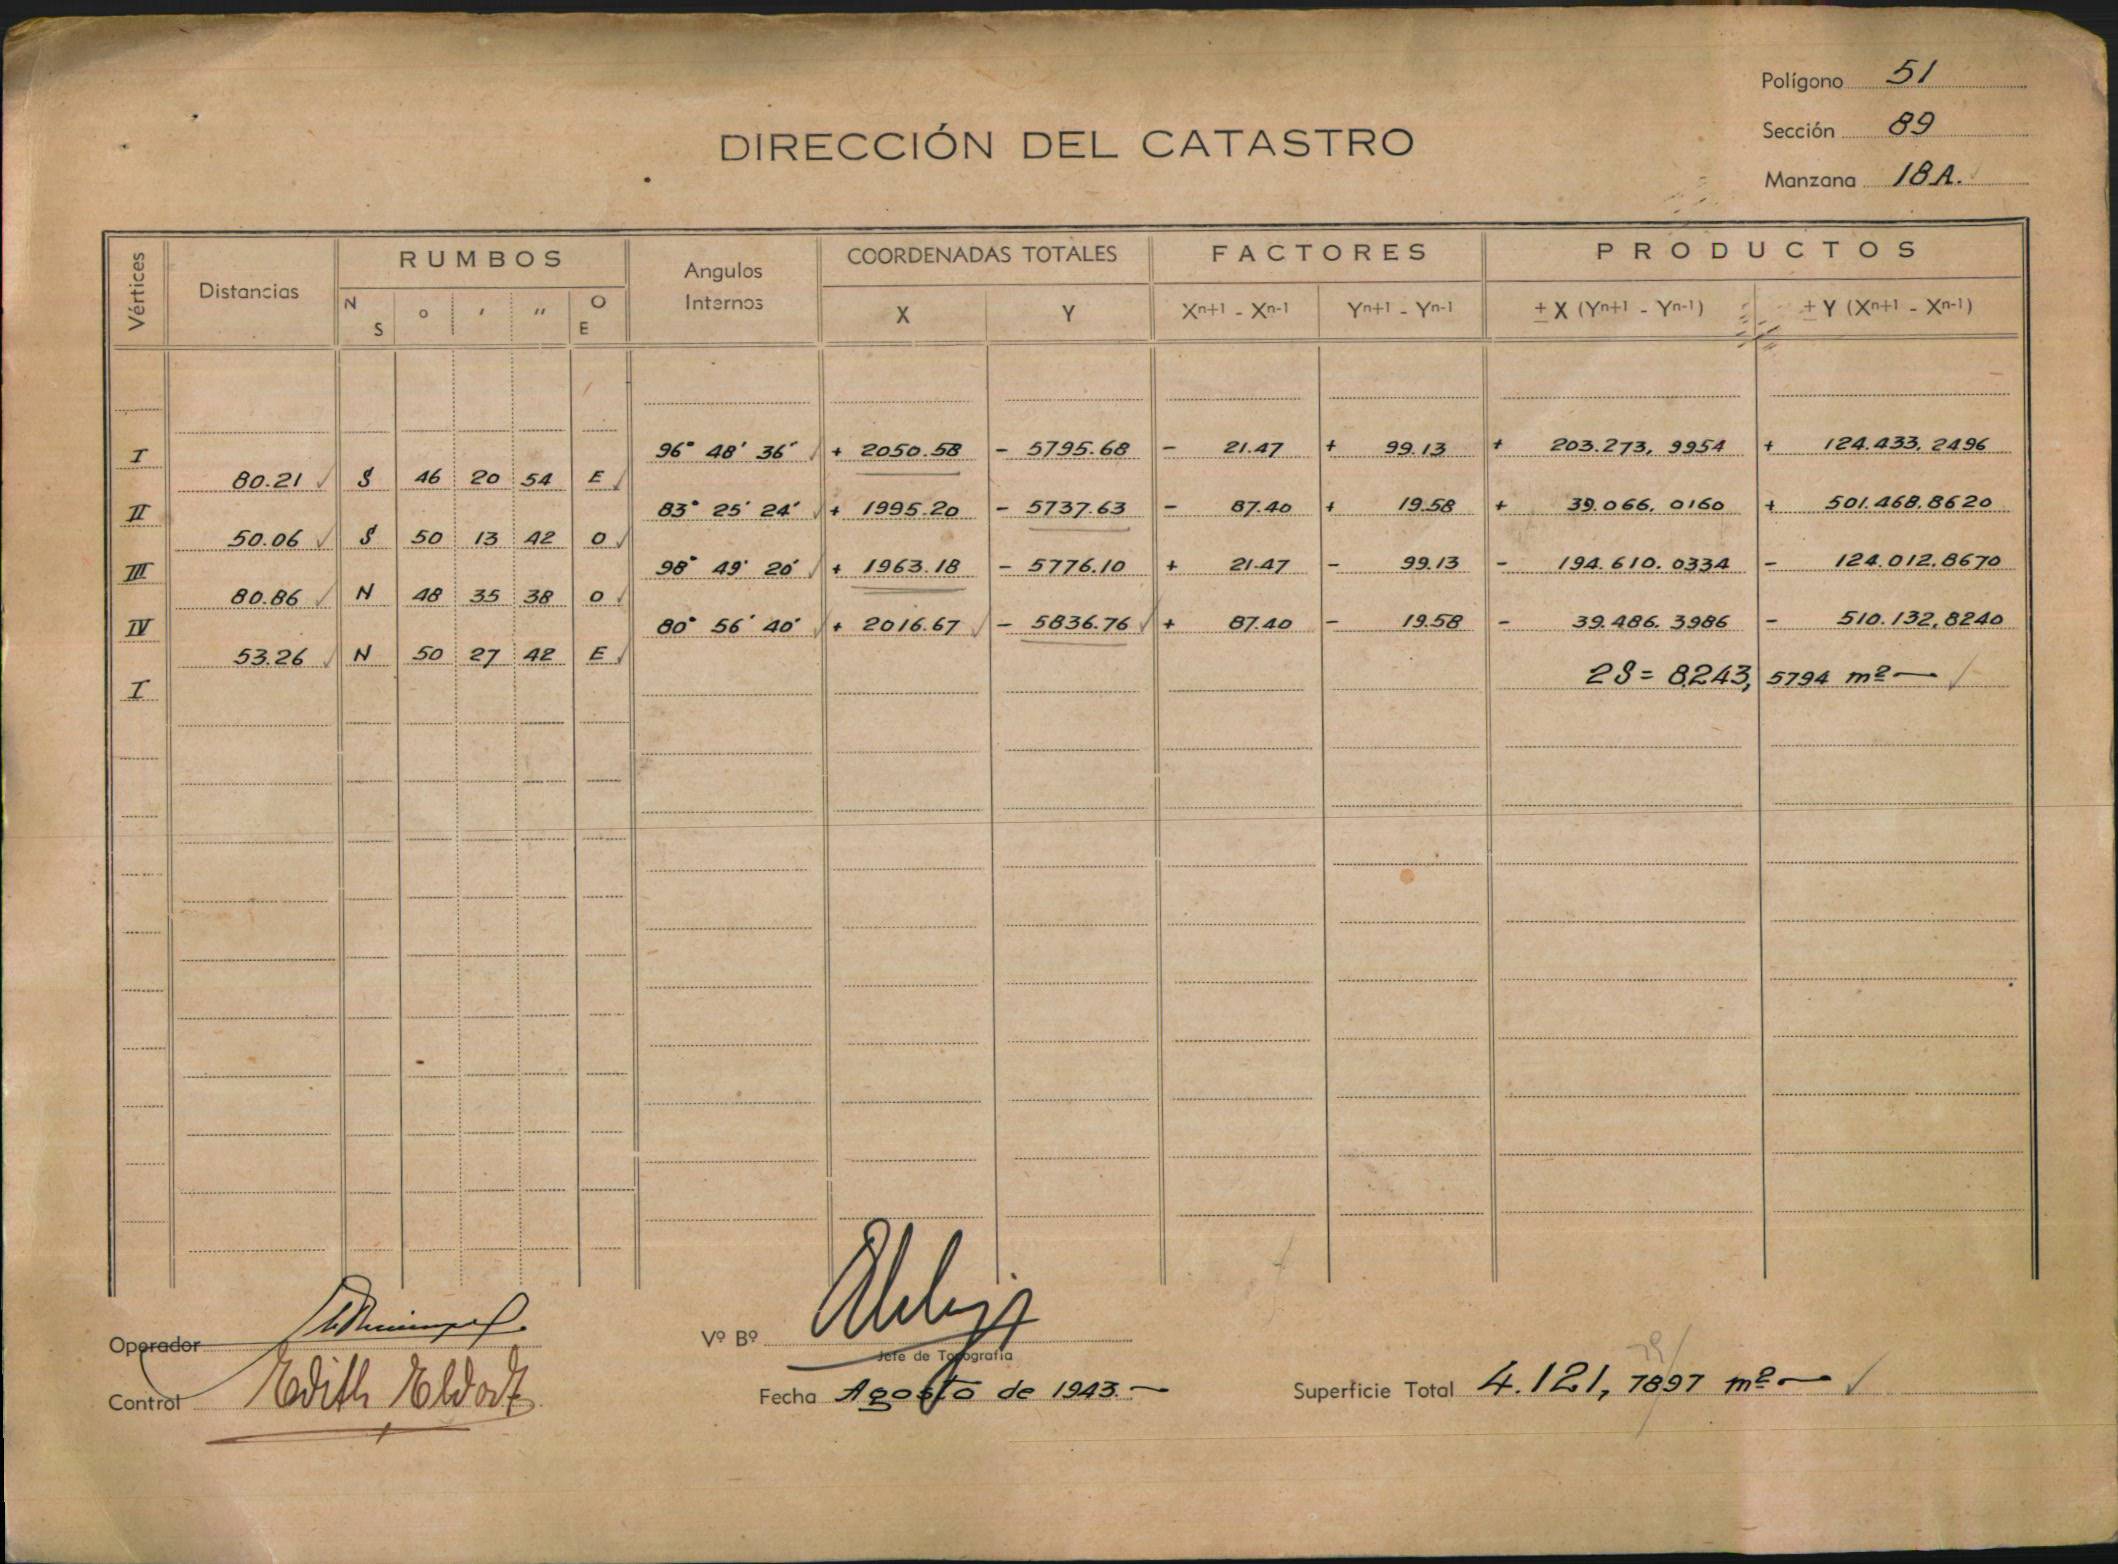 Polígono 51
DIRECCIÓN DEL CATASTRO
Sección 89
Manzana 18A.
Vértices Distancias RUMBOS Angulos Internos COORDENADAS TOTALES FACTORES PRODUCTOS
N S ° ' " O E X Y Xn+1 - Xn-1 Yn+1 - Yn-1 ± X (Yn+1 - Yn-1) ± Y (Xn+1 - Xn-1)
I 96° 48' 36' + 2050.58 - 5795.68 - 21.47 + 99.13 + 203.273, 9954 + 124.433, 2496
80.21 S 46 20 54 E
II 83° 25' 24' + 1995.20 - 5737.63 - 87.40 + 19.58 + 39.066, 0160 + 501.468,8620
50.06 S 50 13 42 O
III 98° 49' 20' + 1963.18 - 5776.10 + 21.47 - 99.13 - 194.610. 0334 - 124.012,8670
80.86 N 48 35 38 O
IV 80° 56' 40' + 2016.67 - 5836.76 + 87.40 - 19.58 - 39.486. 3986 - 510.132,8240
53.26 N 50 27 42 E
I 2S = 8.243, 5794 m²
Operador
Vº Bº
Jefe de Topografía
Control Edith
Fecha Agosto de 1943.-
Superficie Total 4.121, 7897 m²